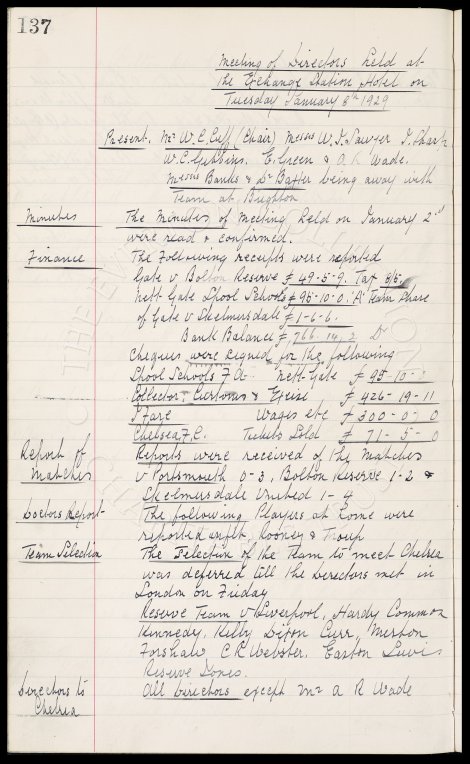 137
Meeting of Directors held at
the Exchange Station Hotel on
Tuesday January 8th 1929
Present. Mr W.C. Cuff (Chair) Messrs W.J. Sawyer J. Sharp
W.C. Gibbins, E. Green & A.R. Wade.
Messrs Banks & Dr Baxter being away with
Team at Brighton
Minutes The Minutes of Meeting held on January 2nd
were read & confirmed.
Finance The Following receipts were reported
Gate v Bolton Reserve £49-5-9. Tax
Nett Gate Lpool Schools £95-10-0. 'A' Team Share
of Gate v Skelmersdale £1-6-6.
Bank Balance £766.14.2 Dr
Cheques were signed for the following
Lpool Schools F.A. Nett Gate £95-10-
Collector: Customs & Excise £426-19-11
Wages etc £300-0-0
Chelsea F.C. Tickets Sold £71-5-0
Report of Reports were received of the Matches
Matches v Portsmouth 0-3, Bolton Reserve 1-2 &
Skelmersdale United 1-4
Doctors Report The following Players at home were
reported unfit, Rooney & Troup
Team Selection The Selection of the Team to meet Chelsea
was deferred till the Directors met in
London on Friday
Reserve Team v Liverpool, Hardy Common
Kennedy, Kelly Dixon Curr, Meston
Forshaw C.R. Webster, Easton Lewis
Reserve Jones.
Directors to All Directors except Mr A R Wade
Chelsea